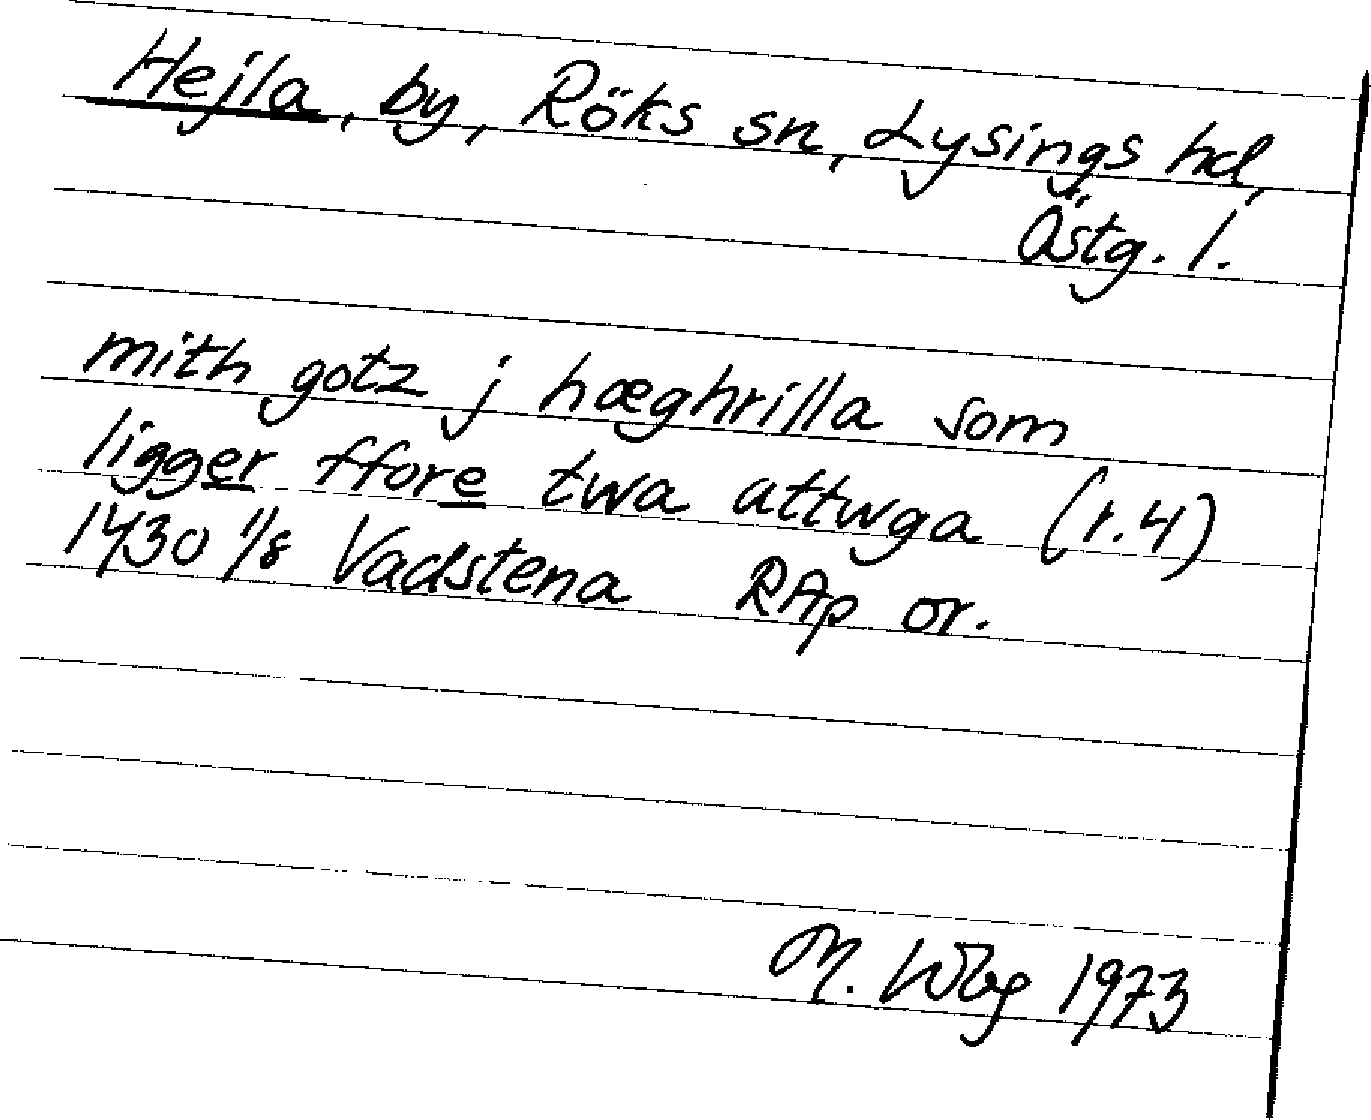 Hejla, by, Röks sn, Lysings hd,
Östg. l.
mith gotz j hæghrilla som
ligger ffore twa attwga (r.4)
1430 1/8 Vadstena RAp or.
M. Wbg 1973